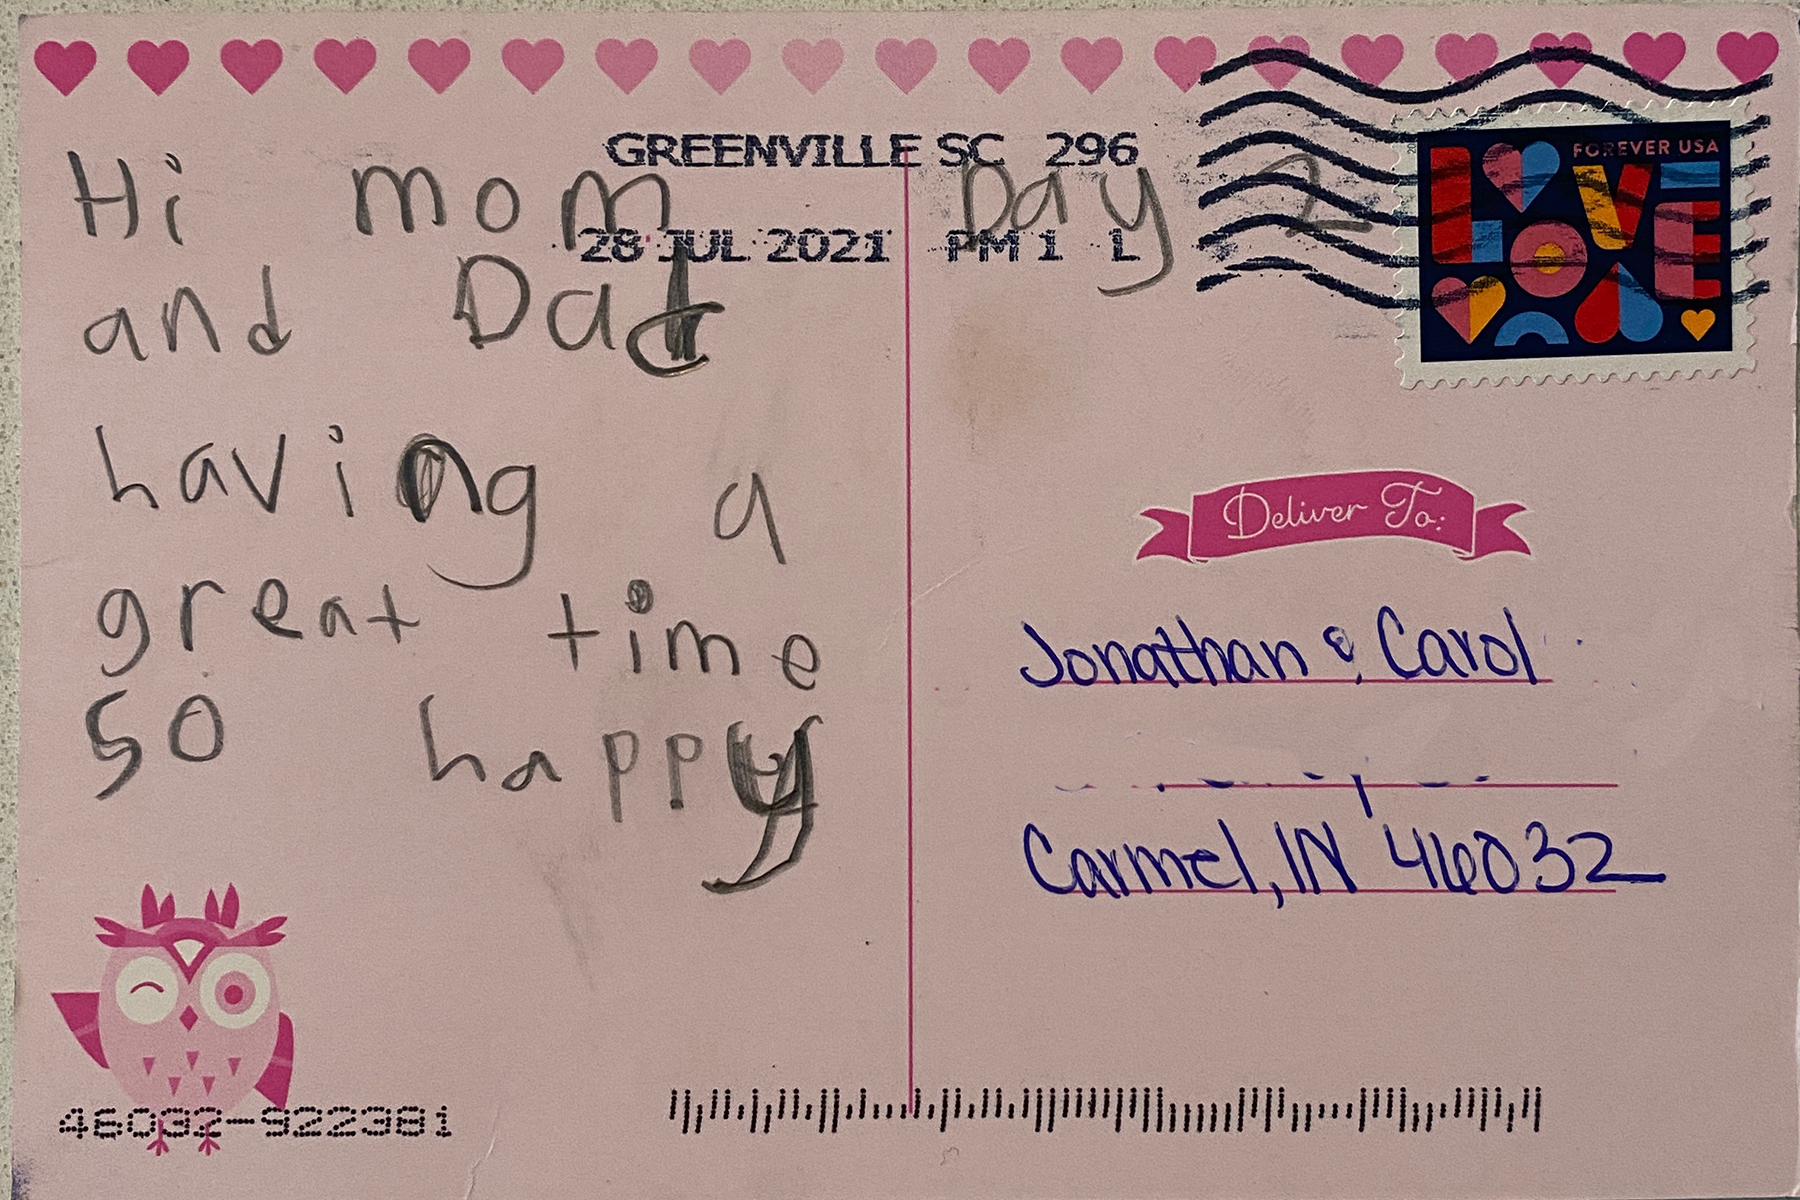 GREENVILLE SC 296
28 JUL 2021 PM 1 L
FOREVER USA
LOVE
Day 2
Hi mom
and Dad
having a
great time
so happy
Deliver To:
Jonathan & Carol
Carmel, IN 46032
46032-922381